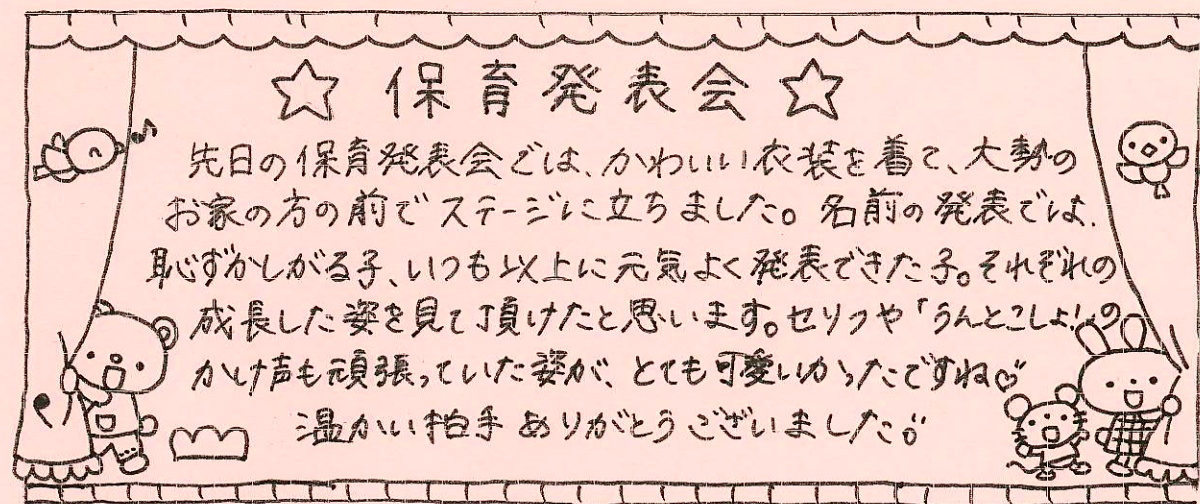 ☆ 保育発表会 ☆
先日の保育発表会では、かわいい衣装を着て、大勢の
お家の方の前でステージに立ちました。名前の発表では、
恥ずかしがる子、いつも以上に元気よく発表できた子。それぞれの
成長した姿を見て頂けたと思います。セリフや「うんとこしょ!」の
かけ声も頑張っていた姿が、とても可愛いかったですね♡
温かい拍手ありがとうございました。